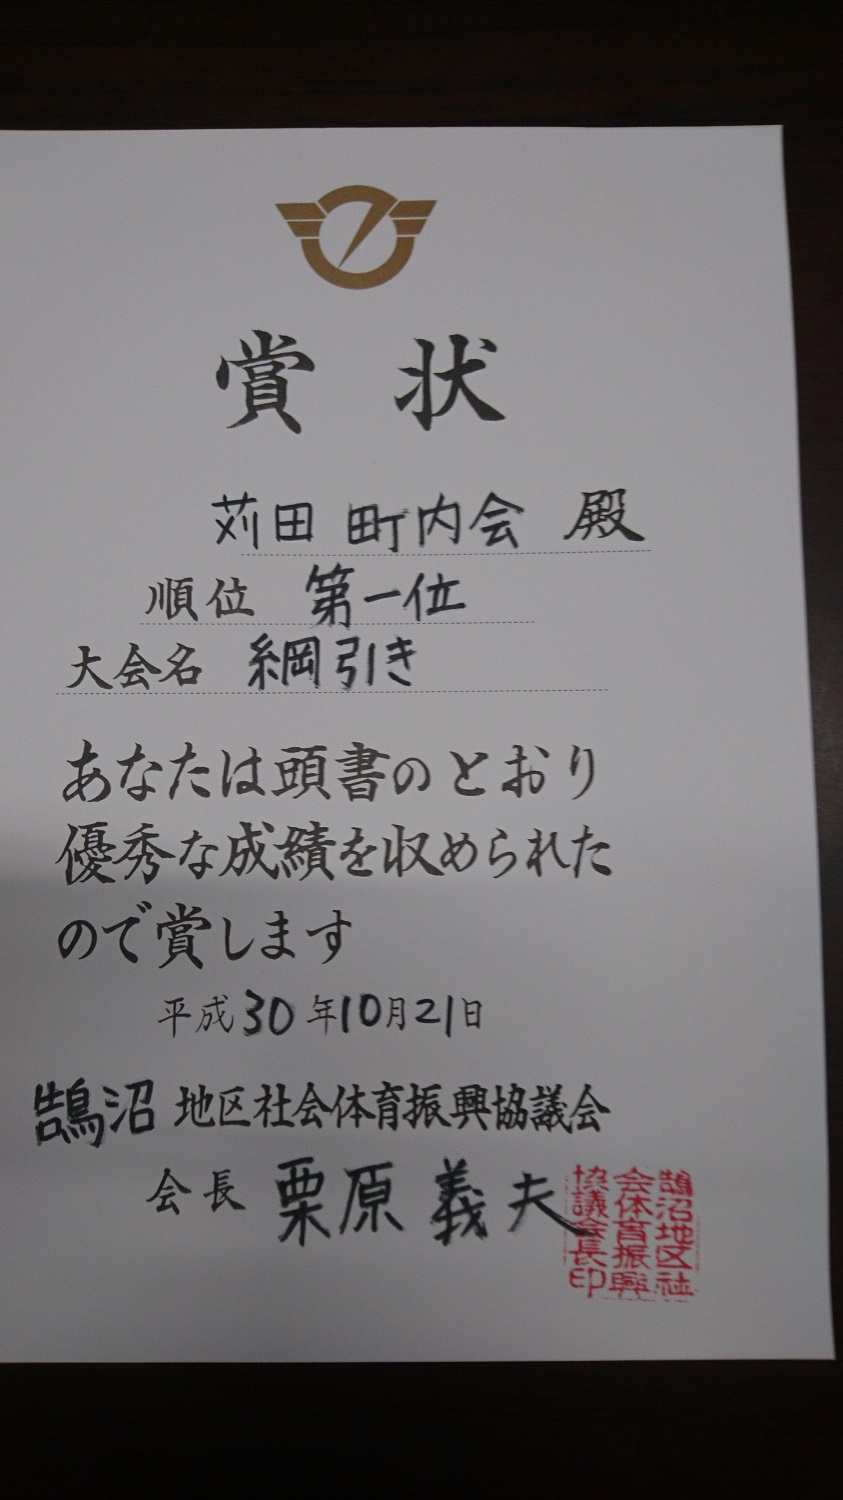 賞 状
苅田 町内会 殿
順位 第一位
大会名 綱引き
あなたは頭書のとおり
優秀な成績を収められた
ので賞します
平成30年10月21日
鵠沼 地区社会体育振興協議会
会長 栗原 義夫
鵠沼地区社
会体育振興
協議会長印